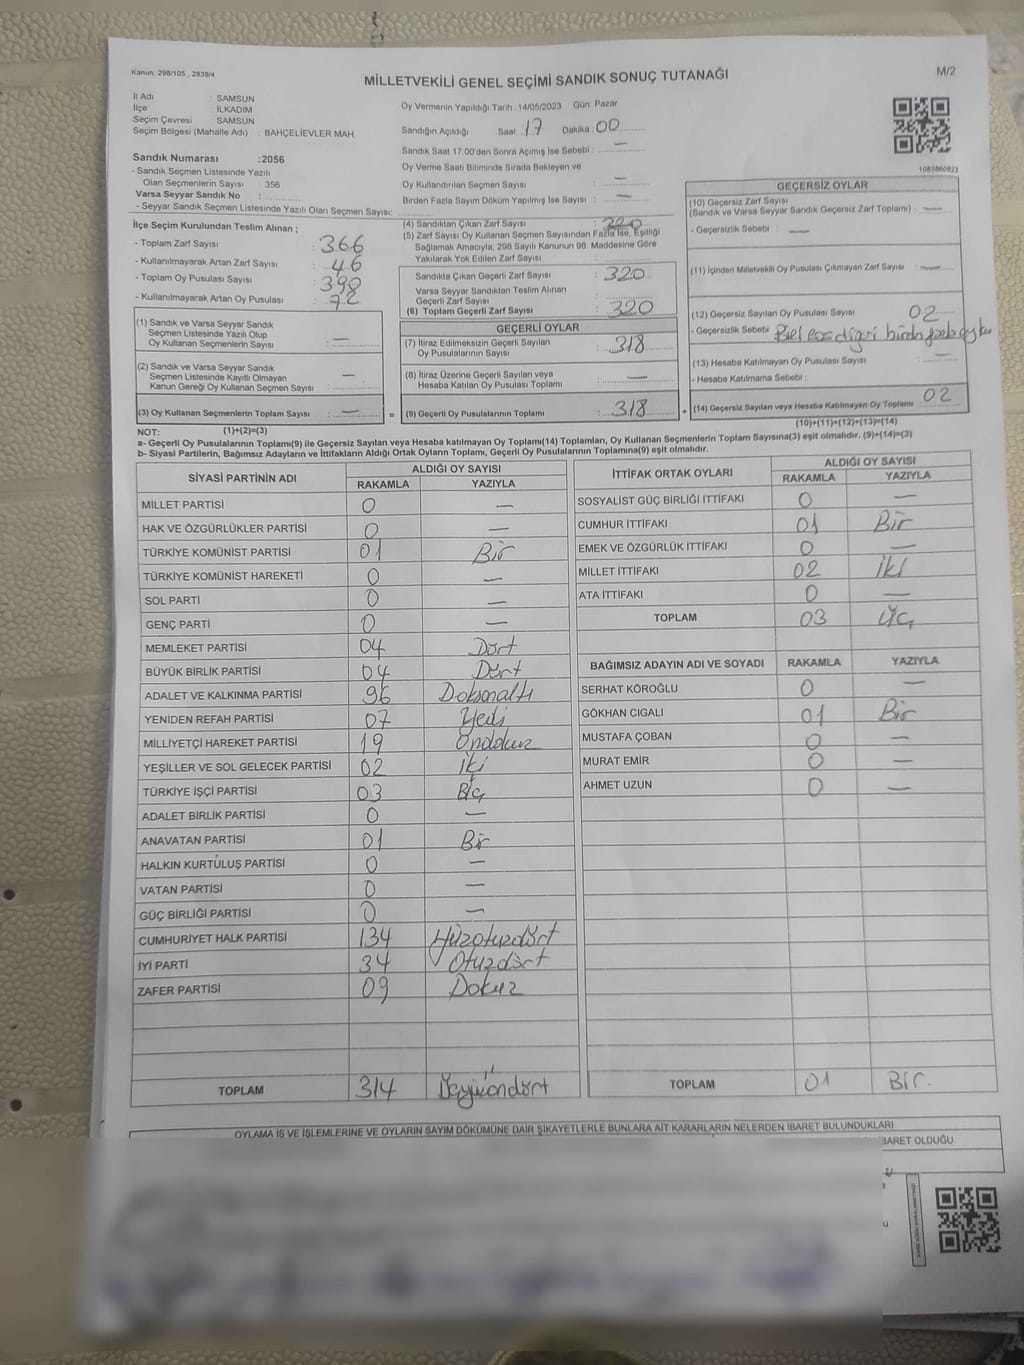 Kanun; 298/105 , 2839/4
MİLLETVEKİLİ GENEL SEÇİMİ SANDIK SONUÇ TUTANAĞI
M/2
İl Adı : SAMSUN
İlçe : İLKADIM
Seçim Çevresi : SAMSUN
Seçim Bölgesi (Mahalle Adı) : BAHÇELİEVLER MAH.
Sandık Numarası :2056
- Sandık Seçmen Listesinde Yazılı
Olan Seçmenlerin Sayısı : 356
Varsa Seyyar Sandık No :
- Seyyar Sandık Seçmen Listesinde Yazılı Olan Seçmen Sayısı:
Oy Vermenin Yapıldığı Tarih : 14/05/2023 Gün: Pazar
Sandığın Açıldığı Saat: 17 Dakika: 00
Sandık Saat 17:00'den Sonra Açılmış İse Sebebi : —
Oy Verme Saati Bitiminde Sırada Bekleyen ve
Oy Kullandırılan Seçmen Sayısı : —
Birden Fazla Sayım Döküm Yapılmış İse Sayısı : —
1083860823
İlçe Seçim Kurulundan Teslim Alınan ;
- Toplam Zarf Sayısı : 366
- Kullanılmayarak Artan Zarf Sayısı : 46
- Toplam Oy Pusulası Sayısı : 390
- Kullanılmayarak Artan Oy Pusulası : 72
(1) Sandık ve Varsa Seyyar Sandık
Seçmen Listesinde Yazılı Olup
Oy Kullanan Seçmenlerin Sayısı : —
(2) Sandık ve Varsa Seyyar Sandık
Seçmen Listesinde Kayıtlı Olmayan
Kanun Gereği Oy Kullanan Seçmen Sayısı : —
(3) Oy Kullanan Seçmenlerin Toplam Sayısı : — =
(1)+(2)=(3)
(4) Sandıktan Çıkan Zarf Sayısı : 320
(5) Zarf Sayısı Oy Kullanan Seçmen Sayısından Fazla İse, Eşitliği
Sağlamak Amacıyla; 298 Sayılı Kanunun 98. Maddesine Göre
Yakılarak Yok Edilen Zarf Sayısı :
Sandıkta Çıkan Geçerli Zarf Sayısı : 320
Varsa Seyyar Sandıktan Teslim Alınan
Geçerli Zarf Sayısı :
(6) Toplam Geçerli Zarf Sayısı : 320
GEÇERLİ OYLAR
(7) İtiraz Edilmeksizin Geçerli Sayılan
Oy Pusulalarının Sayısı : 318
(8) İtiraz Üzerine Geçerli Sayılan veya
Hesaba Katılan Oy Pusulası Toplamı : —
(9) Geçerli Oy Pusulalarının Toplamı : 318 +
GEÇERSİZ OYLAR
(10) Geçersiz Zarf Sayısı
(Sandık ve Varsa Seyyar Sandık Geçersiz Zarf Toplamı) : —
- Geçersizlik Sebebi : —
(11) İçinden Milletvekili Oy Pusulası Çıkmayan Zarf Sayısı : —
(12) Geçersiz Sayılan Oy Pusulası Sayısı : 02
- Geçersizlik Sebebi : diğeri
(13) Hesaba Katılmayan Oy Pusulası Sayısı : —
- Hesaba Katılmama Sebebi :
(14) Geçersiz Sayılan veya Hesaba Katılmayan Oy Toplamı : 02
(10)+(11)+(12)+(13)=(14)
NOT:
a- Geçerli Oy Pusulalarının Toplamı(9) ile Geçersiz Sayılan veya Hesaba katılmayan Oy Toplamı(14) Toplamları, Oy Kullanan Seçmenlerin Toplam Sayısına(3) eşit olmalıdır. (9)+(14)=(3)
b- Siyasi Partilerin, Bağımsız Adayların ve İttifakların Aldığı Ortak Oyların Toplamı, Geçerli Oy Pusulalarının Toplamına(9) eşit olmalıdır.
SİYASİ PARTİNİN ADI ALDIĞI OY SAYISI
RAKAMLA YAZIYLA
MİLLET PARTİSİ 0 —
HAK VE ÖZGÜRLÜKLER PARTİSİ 0 —
TÜRKİYE KOMÜNİST PARTİSİ 01 Bir
TÜRKİYE KOMÜNİST HAREKETİ 0 —
SOL PARTİ 0 —
GENÇ PARTİ 0 —
MEMLEKET PARTİSİ 04 Dört
BÜYÜK BİRLİK PARTİSİ 04 Dört
ADALET VE KALKINMA PARTİSİ 96 Doksanaltı
YENİDEN REFAH PARTİSİ 07 Yedi
MİLLİYETÇİ HAREKET PARTİSİ 19 Ondokuz
YEŞİLLER VE SOL GELECEK PARTİSİ 02 İki
TÜRKİYE İŞÇİ PARTİSİ 03
ADALET BİRLİK PARTİSİ 0 —
ANAVATAN PARTİSİ 01 Bir
HALKIN KURTULUŞ PARTİSİ 0 —
VATAN PARTİSİ 0 —
GÜÇ BİRLİĞİ PARTİSİ 0 —
CUMHURİYET HALK PARTİSİ 134 Yüzotuzdört
İYİ PARTİ 34 Otuzdört
ZAFER PARTİSİ 09 Dokuz
TOPLAM 314 Üçyüzondört
İTTİFAK ORTAK OYLARI ALDIĞI OY SAYISI
RAKAMLA YAZIYLA
SOSYALİST GÜÇ BİRLİĞİ İTTİFAKI 0 —
CUMHUR İTTİFAKI 01 Bir
EMEK VE ÖZGÜRLÜK İTTİFAKI 0 —
MİLLET İTTİFAKI 02 İki
ATA İTTİFAKI 0 —
TOPLAM 03 Üç
BAĞIMSIZ ADAYIN ADI VE SOYADI RAKAMLA YAZIYLA
SERHAT KÖROĞLU 0 —
GÖKHAN CIGALI 01 Bir
MUSTAFA ÇOBAN 0 —
MURAT EMİR 0 —
AHMET UZUN 0 —
TOPLAM 01 Bir.
OYLAMA İŞ VE İŞLEMLERİNE VE OYLARIN SAYIM DÖKÜMÜNE DAİR ŞİKAYETLERLE BUNLARA AİT KARARLARIN NELERDEN İBARET BULUNDUKLARI
BARET OLDUĞU